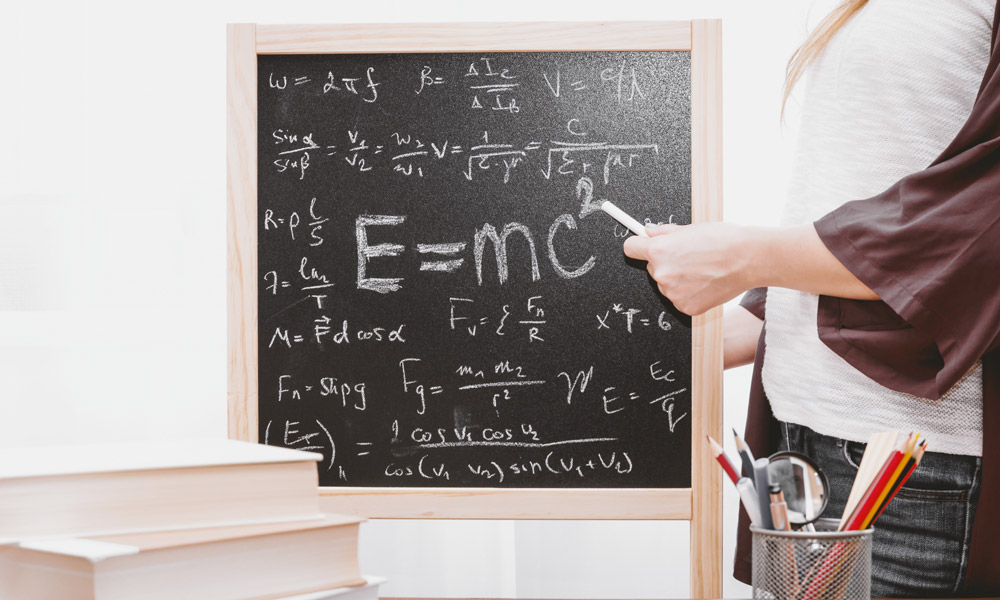 ω = 2πf   β = ΔI_c/ΔI_B   V = c/λ
sin α/sin β = v₁/v₂ = w₂/w₁   V = 1/√(ε μ) = c/√(ε r μ r)
R = ρ l/S
E = mc²
λ = ln₂/T
M = F⃗ d cos α   F_v = ξ F_n/R   x*T = 6
F_n = Shρg   F_g = m₁ m₂/r²   E = E_c/q
= 1 cos υ₁ cos υ₂/cos(υ₁ υ₂) sin(υ₁+υ₂)